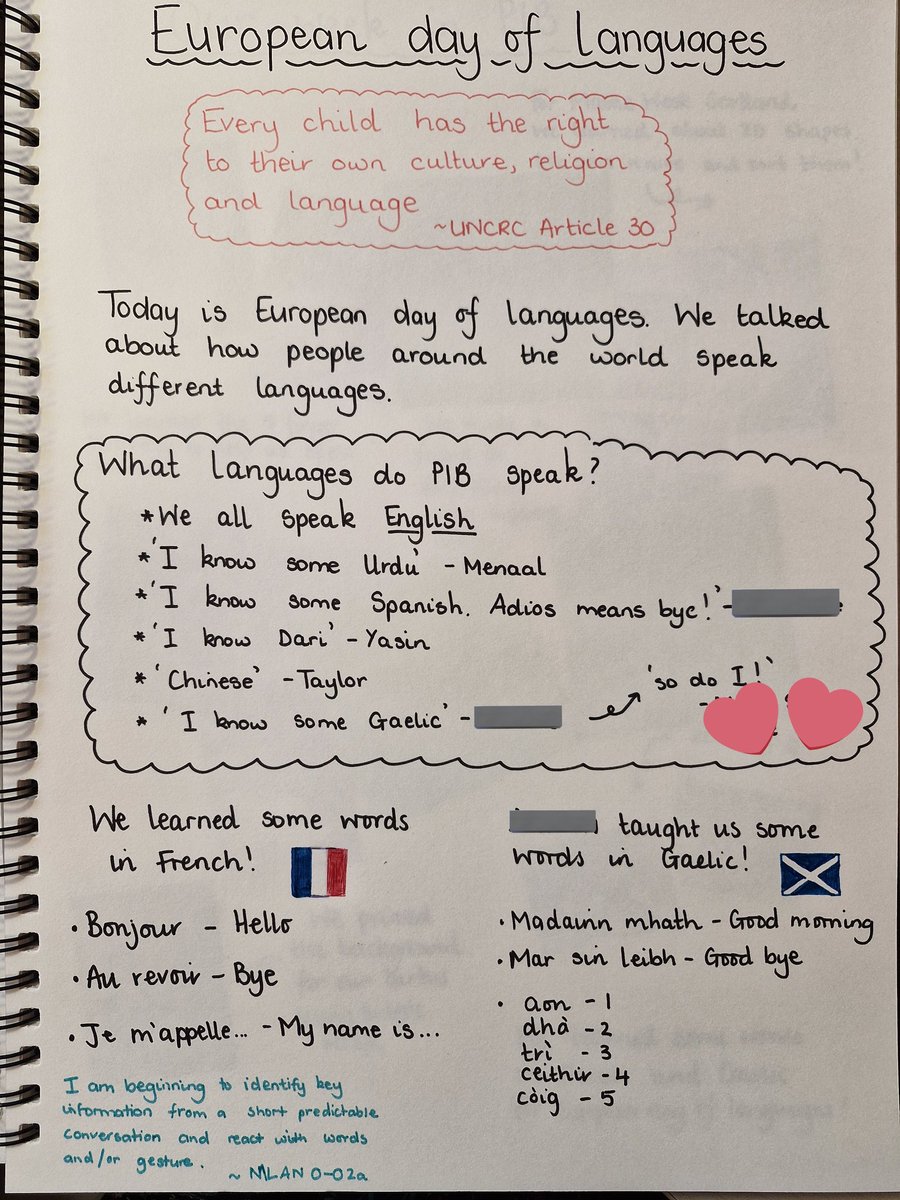 European day of languages
Every child has the right
to their own culture, religion
and language
~UNCRC Article 30
Today is European day of languages. We talked
about how people around the world speak
different languages.
What languages do P1B speak?
*We all speak English
*'I know some Urdu' - Menaal
*'I know some Spanish. Adios means bye!' -
*'I know Dari' - Yasin
*'Chinese' - Taylor
'so do I!'
*'I know some Gaelic' -
We learned some words
in French!
• Bonjour - Hello
• Au revoir - Bye
• Je m'appelle... - My name is...
I am beginning to identify key
information from a short predictable
conversation and react with words
and/or gesture.
~ MLAN 0-02a
taught us some
words in Gaelic!
• Madainn mhath - Good morning
• Mar sin leibh - Good bye
• aon - 1
dhà - 2
trì - 3
ceithir - 4
còig - 5